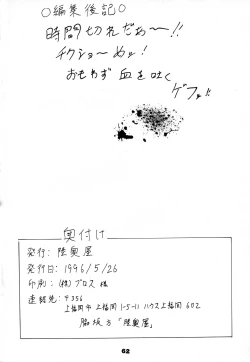 ○編集後記○
時間切れだぁ〜!!
チクショ〜めッ!
おもわず血を吐く
ゲフッ!!
奥付け
発行: 陸奥屋
発行日: 1996/5/26
印刷: (株)プロス 様
連絡先: 〒356
上福岡市上福岡1-5-11 ハウス上福岡602
脇坂方「陸奥屋」
62